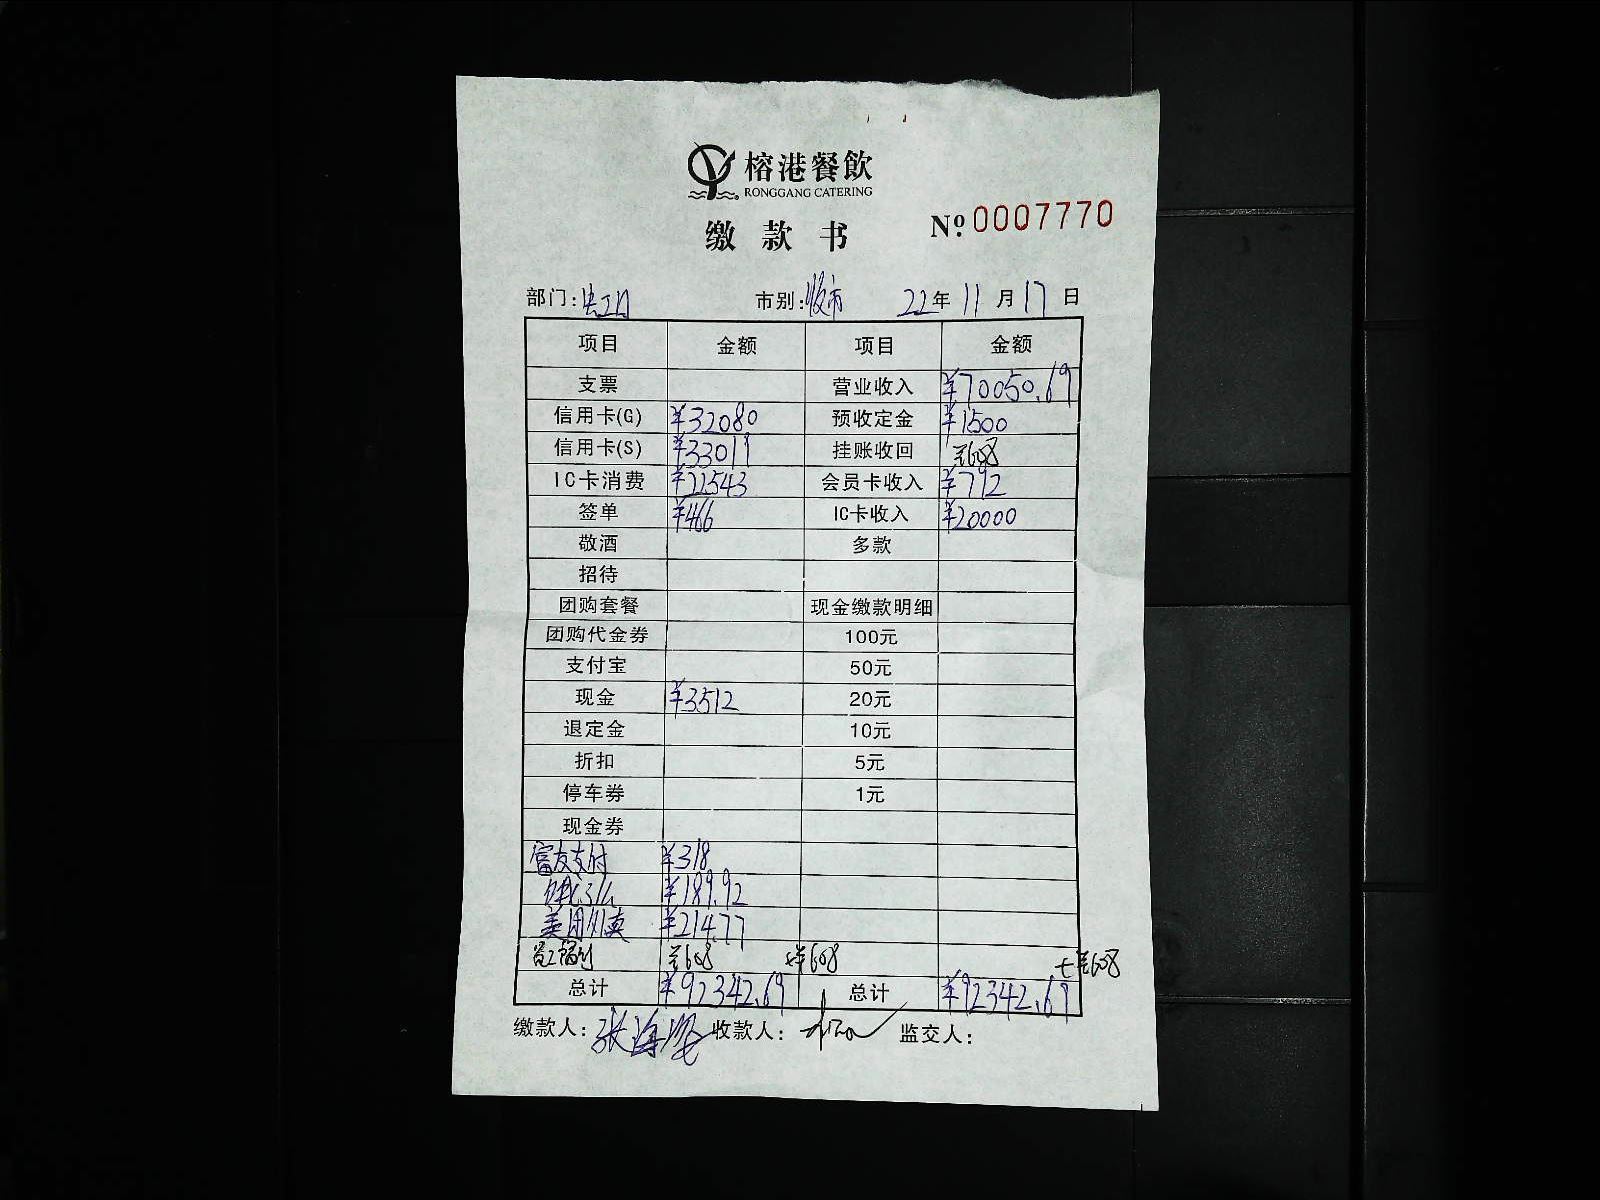 榕港餐飲
RONGGANG CATERING
缴款书
№ 0007770
部门: 市别: 市 22年 11月 17日
项目 金额 项目 金额
支票 营业收入 ¥70050.69
信用卡(G) ¥32080 预收定金 ¥1500
信用卡(S) ¥33019 挂账收回 ¥608
IC卡消费 ¥22543 会员卡收入 ¥792
签单 ¥466 IC卡收入 ¥20000
敬酒 多款
招待
团购套餐 现金缴款明细
团购代金券 100元
支付宝 50元
现金 ¥3512 20元
退定金 10元
折扣 5元
停车券 1元
现金券
富友支付 ¥318
饿了么 ¥189.92
美团外卖 ¥214.77
员工福利 ¥608 +¥608 +¥608
总计 ¥92342.69 总计 ¥92342.69
缴款人: 张海 收款人: 监交人: